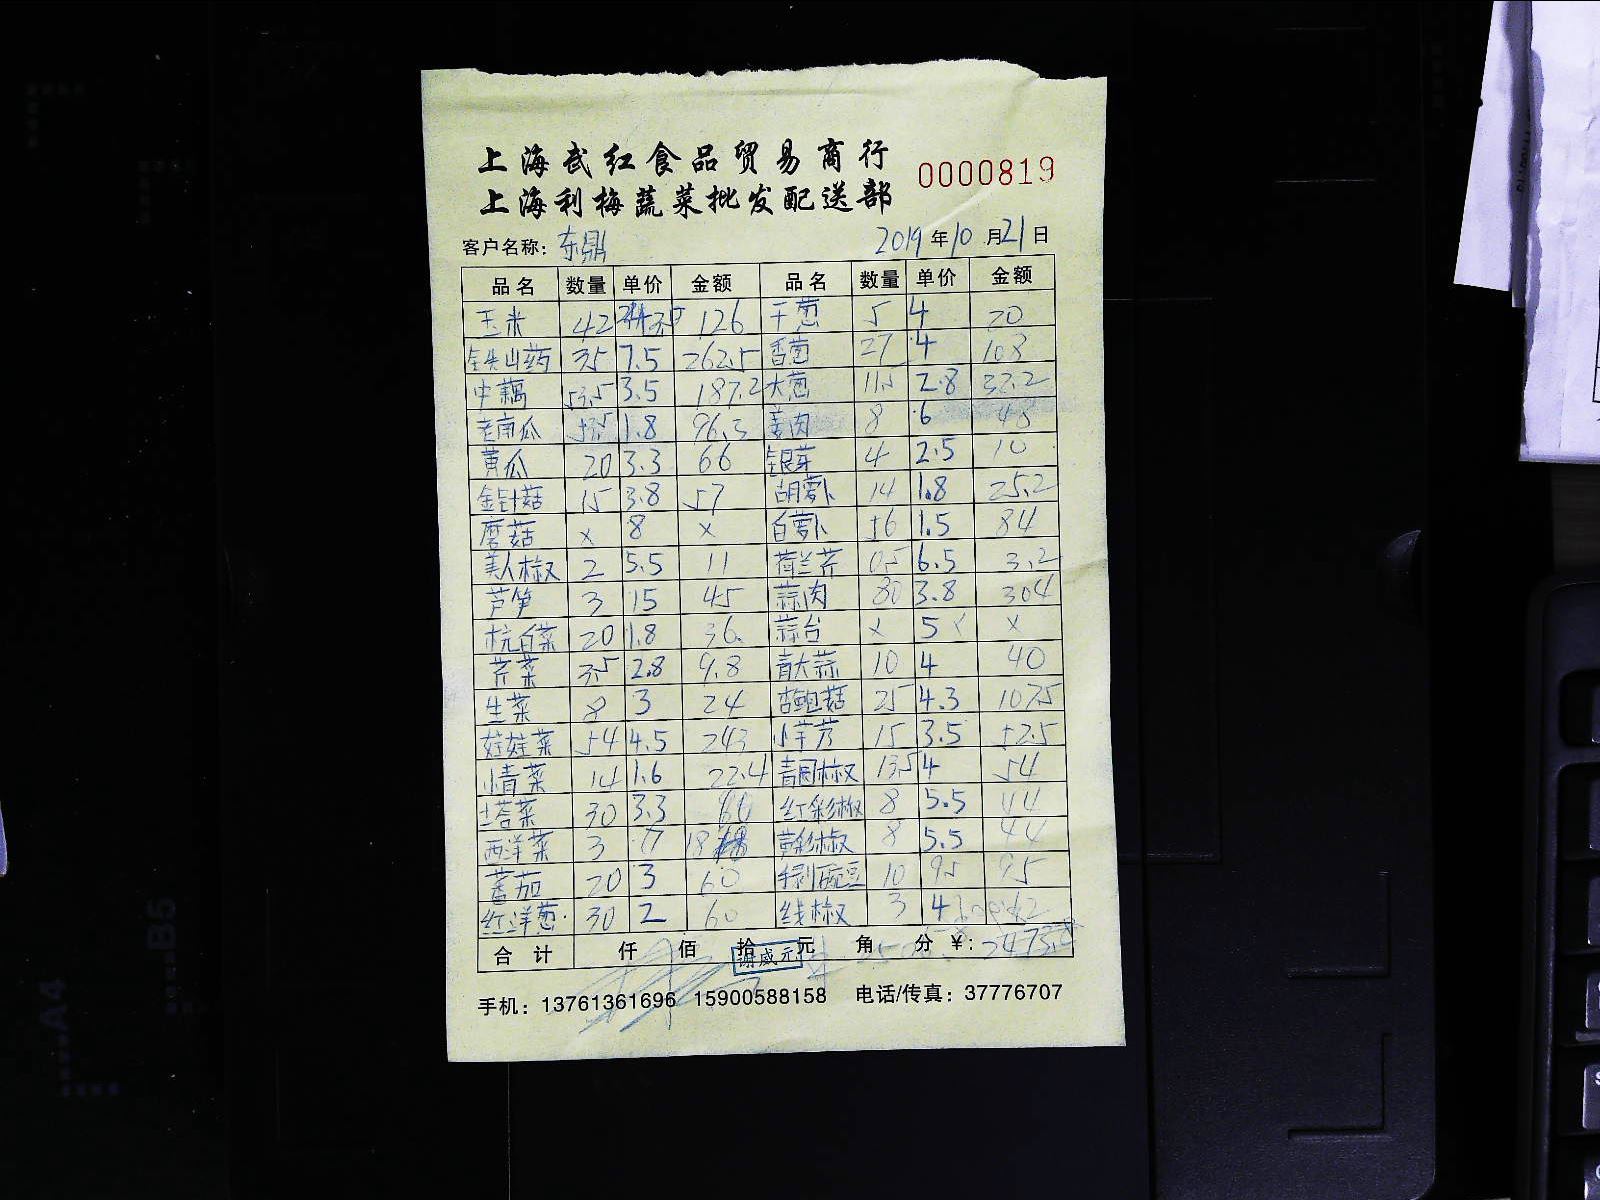 上海武红食品贸易商行
上海利梅蔬菜批发配送部
0000819
客户名称: 东鼎 2019年10月21日
品名 数量 单价 金额 品名 数量 单价 金额
玉米 42 126 干葱 5 4 20
铁山药 35 7.5 262.5 香菌 27 4 108
中藕 53.5 3.5 187.2 大葱 11.5 2.8 32.2
老南瓜 53.5 1.8 96.3 姜肉 8 6 48
黄瓜 20 3.3 66 银芽 4 2.5 10
金针菇 15 3.8 57 胡萝卜 14 1.8 25.2
磨菇 x 8 x 白萝卜 56 1.5 84
美人椒 2 5.5 11 荷兰芹 0.5 6.5 3.2
芦笋 3 15 45 蒜肉 80 3.8 304
杭白菜 20 1.8 36 蒜台 x 5 x x
芹菜 3.5 2.8 9.8 青大蒜 10 4 40
生菜 8 3 24 杏鲍菇 25 4.3 107.5
娃娃菜 54 4.5 243 小芋艿 15 3.5 52.5
小青菜 14 1.6 22.4 青园椒 13.5 4 54
塔菜 30 3.3 红彩椒 8 5.5 44
西洋菜 3 18 黄彩椒 8 5.5 44
蕃茄 20 3 60 手剥豌豆 10 9.5 95
红洋葱 30 2 60 线椒 3 4
合计 仟 佰 拾 元 角 分 ¥:
谢咸元
手机: 13761361696 15900588158 电话/传真: 37776707